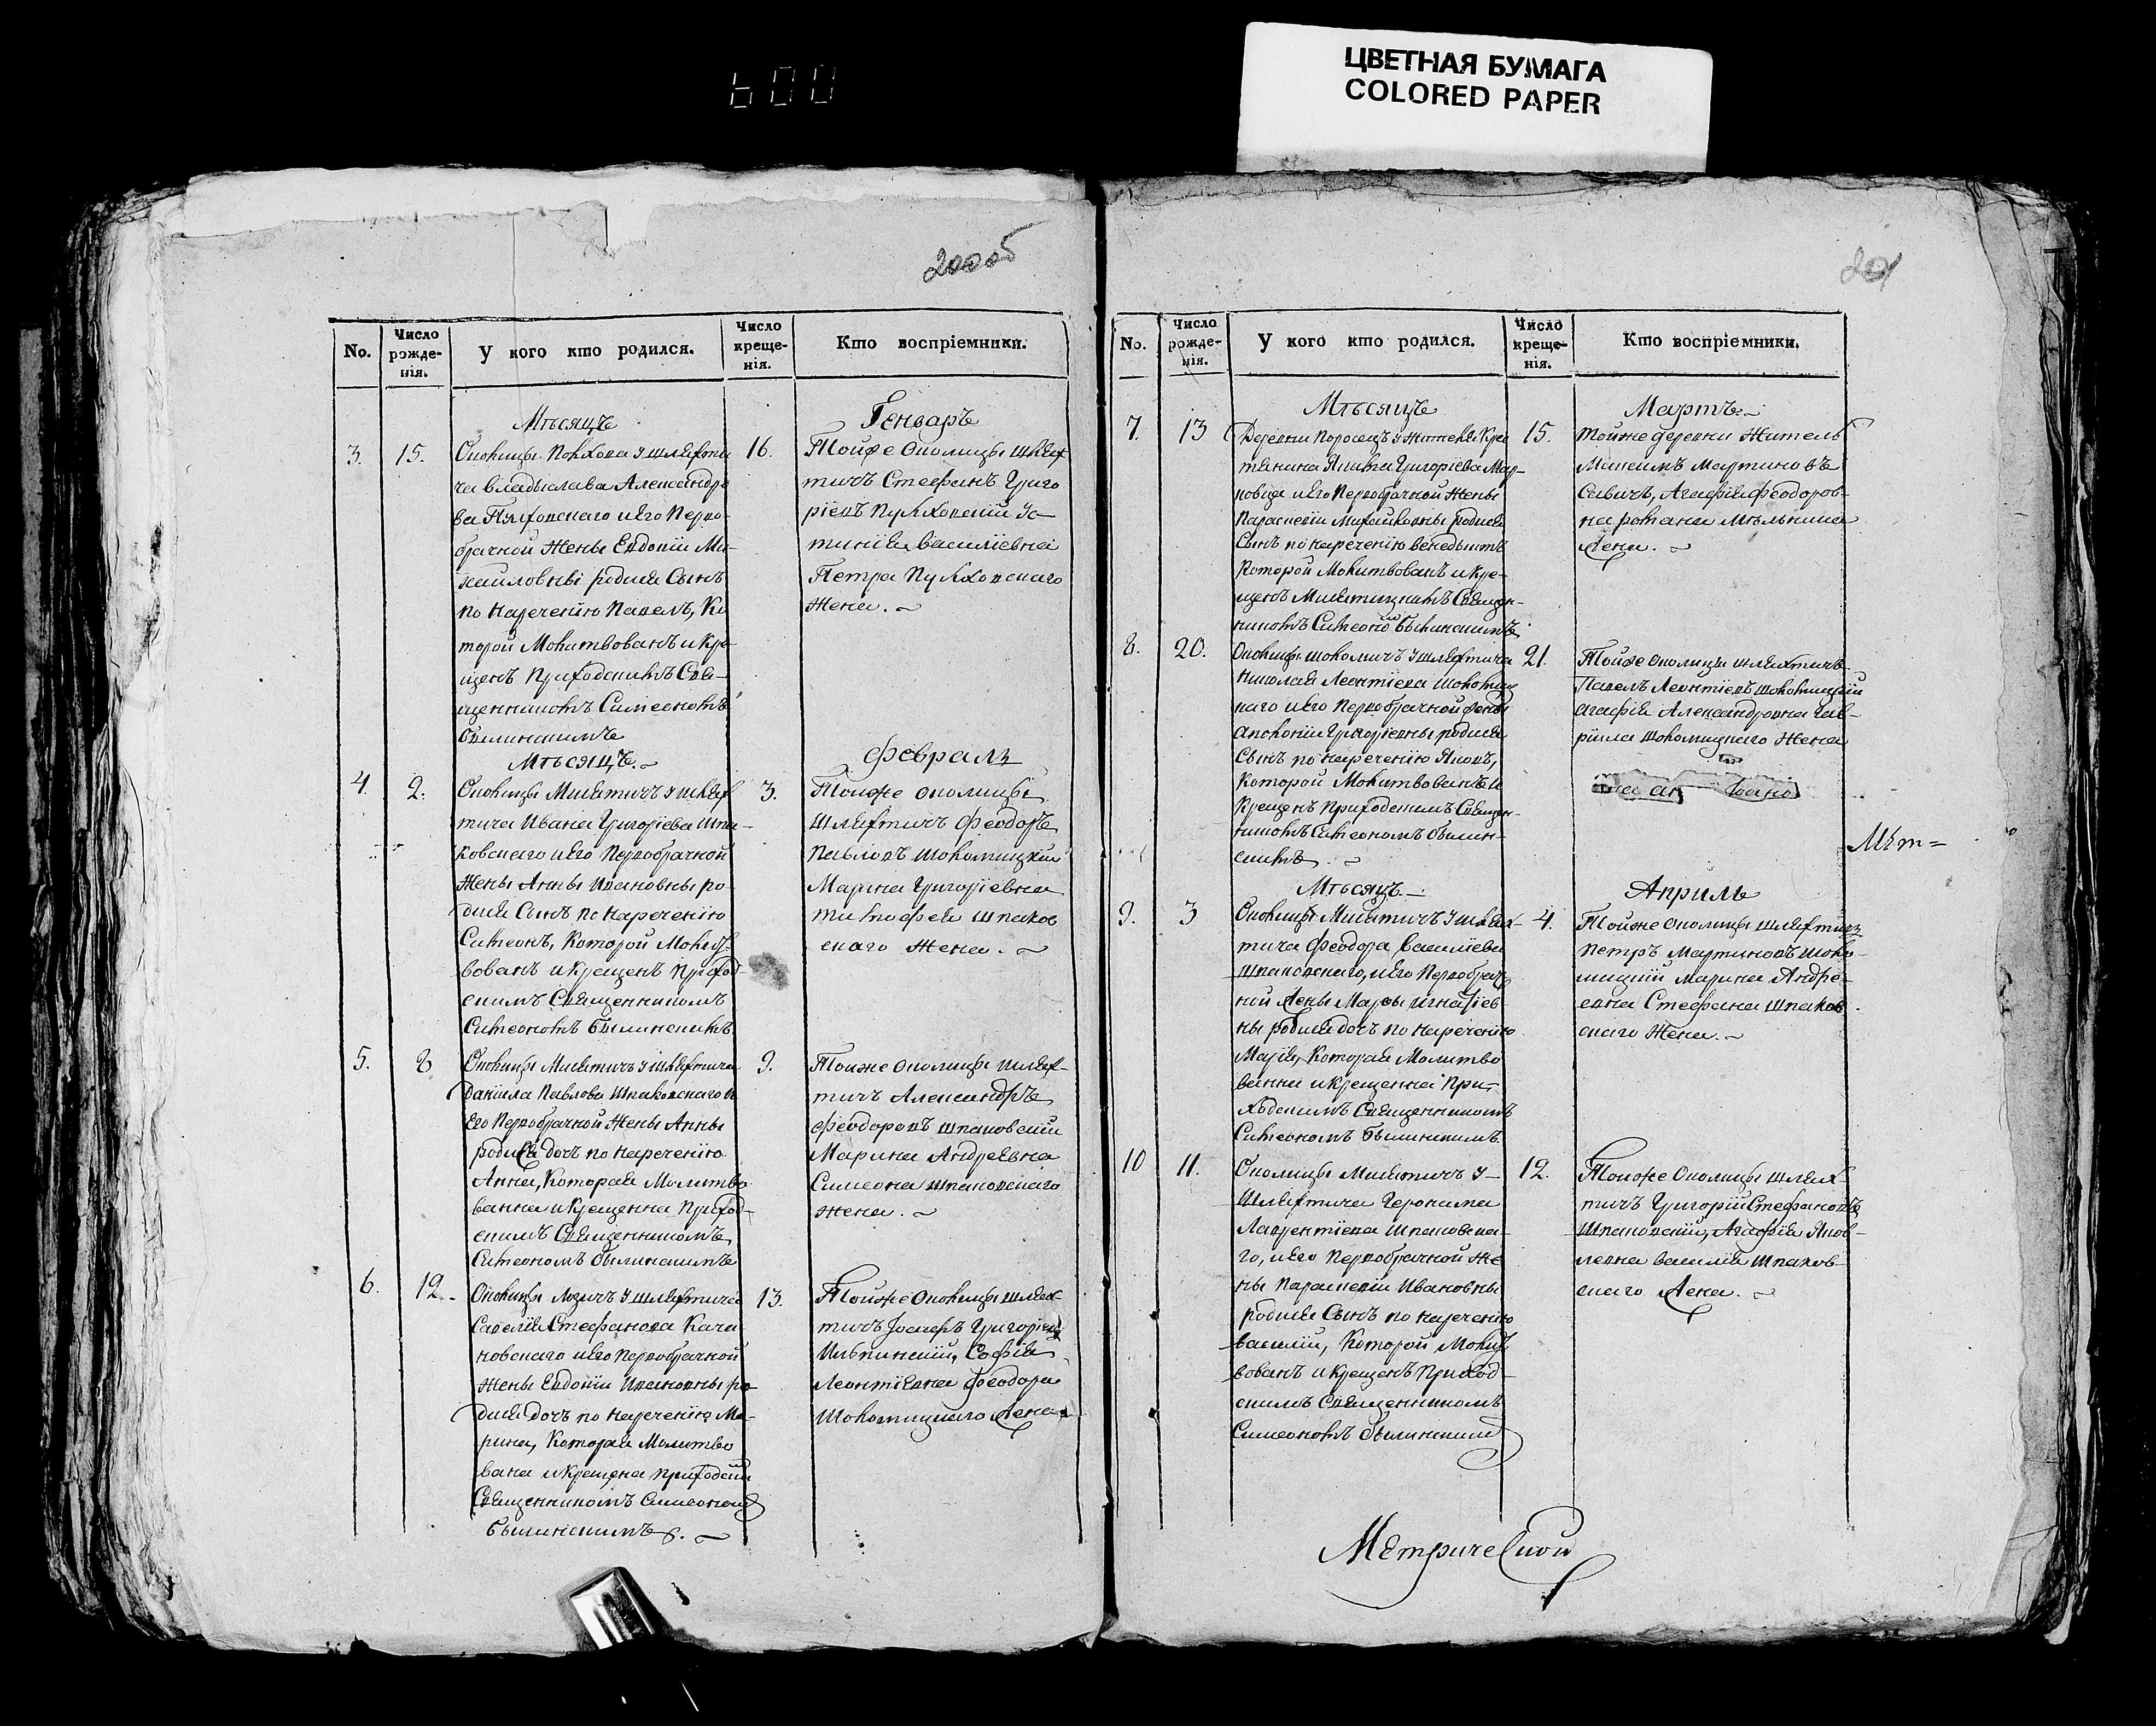 ЦВЕТНАЯ БУМАГА
COLORED PAPER
600
200об
201
No.
Число рожде-нія.
У кого кто родился.
Число креще-нія.
Кто воспріемники.
Мѣсяцъ
Генварь
3. 15.
Околицы Пулхова у шляхти
ча Владыслава Александро
ва Пулховскаго и Его Перво-
брачной Жены Евдокіи Ми-
хайловны родился Сынъ
по Наречению Павелъ, Ко
торой Молитвованъ и Кре-
щенъ Приходскимъ Свя-
щенникомъ Симеономъ
Былинскимъ
16.
Тойже Околицы Шлях
тичъ Стефанъ Григо
ріевъ Пулховскій Ус-
тинія Василіевна
Петра Пулховскаго
Жена.
Мѣсяцъ.
Февраль
4. 2.
Околицы Микитичъ у шлях
тича Ивана Григоріева Шпа-
ковскаго и Его Первобрачной
Жены Анны Ивановны ро-
дился Сынъ по Наречению
Симеонъ, Которой Молит-
вованъ и Крещенъ Приход-
скимъ Священникомъ
Симеономъ Былинскимъ
3.
Тойже Околицы
Шляхтичъ Феодоръ
Павловъ Шоломицкій
Марина Григоріевна
Тимофея Шпаков
скаго Жена.
5. 8
Околицы Микитичъ у шляхтича
Даніила Павлова Шпаковскаго и
Его Первобрачной Жены Анны
родилась дочь по Наречению
Анна, Которая Молитво
ванна и Крещенна Приход-
скимъ Священникомъ
Симеономъ Былинскимъ
9.
Тойже Околицы Шлях-
тичъ Александръ
Феодоровъ Шпаковскій
Марина Андреевна
Симеона Шпаковскаго
Жена.
6. 12.
Околицы Лозичъ у шляхтича
Савелія Стефанова Кача
новскаго и Его Первобрачной
Жены Евдокіи Ивановны ро-
дилася дочь по Наречению Ма-
рина, Которая Молитво
вана и Крещена Приходскимъ
Священникомъ Симеономъ
Былинскимъ.
13.
Тойже Околицы Шлях
тичъ Іосифъ Григоріевъ
Софія
Леонтіевна Феодора
Шоломицкаго Жена
No.
Число рожде-нія.
У кого кто родился.
Число креще-нія.
Кто воспріемники.
Мѣсяцъ
Мартъ
7. 13
Деревни у Жителя Крес
тянина Якима Григоріева Мар-
ковца и Его Первобрачной Жены
Параскевіи Михайловны родился
Сынъ по Наречению Венедыктъ
Которой Молитвованъ и Кре-
щенъ Микитицкимъ Священ-
никомъ Симеономъ Былинскимъ
15.
Тойже деревни Житель
Максимъ Мартиновъ
Савичъ, Агафія Феодоров-
на Романа Мѣльника
Жена.
8. 20.
Околицы Шоломичъ у шляхтича
Николая Леонтіева Шоломиц
каго и Его Первобрачной Жены
Аполоніи Григоріевны родился
Сынъ по Наречению Яковъ,
Которой Молитвованъ и
Крещенъ Приходскимъ Священ-
никомъ Симеономъ Былин-
скимъ.
21.
Тойже Околицы Шляхтичъ
Павелъ Леонтіевъ Шоломицкій
Агафія Александровна Гав-
ріила Шоломицкаго Жена
Мѣт=
Мѣсяцъ
Апрѝль
9. 3
Околицы Микитичъ у шлях-
тича Феодора Василіева
Шпаковскаго, и Его Первобрач
ной Жены Марѳы Игнатіев
ны родилась дочь по Наречению
Марія, Которая Молитво
ванна и Крещенна При-
ходскимъ Священникомъ
Симеономъ Былинскимъ
4.
Тойже Околицы Шляхтичъ
Петръ Мартиновъ Шоло-
мицкій Марина Андре-
евна Стефана Шпаков-
скаго Жена.
10 11.
Околицы Микитичъ у
Шляхтича Героніма
Лаврентіева Шпаковска-
го, и Его Первобрачной Же
ны Параскевіи Ивановны
родился Сынъ по Наречению
Василій, Которой Молит
вованъ и Крещенъ Приход-
скимъ Священникомъ
Симеономъ Былинскимъ
12.
Тойже Околицы Шлях-
тичъ Григорій Стефановъ
Шпаковскій, Агафія Яков-
левна Василія Шпаков-
скаго Жена.
Метрической